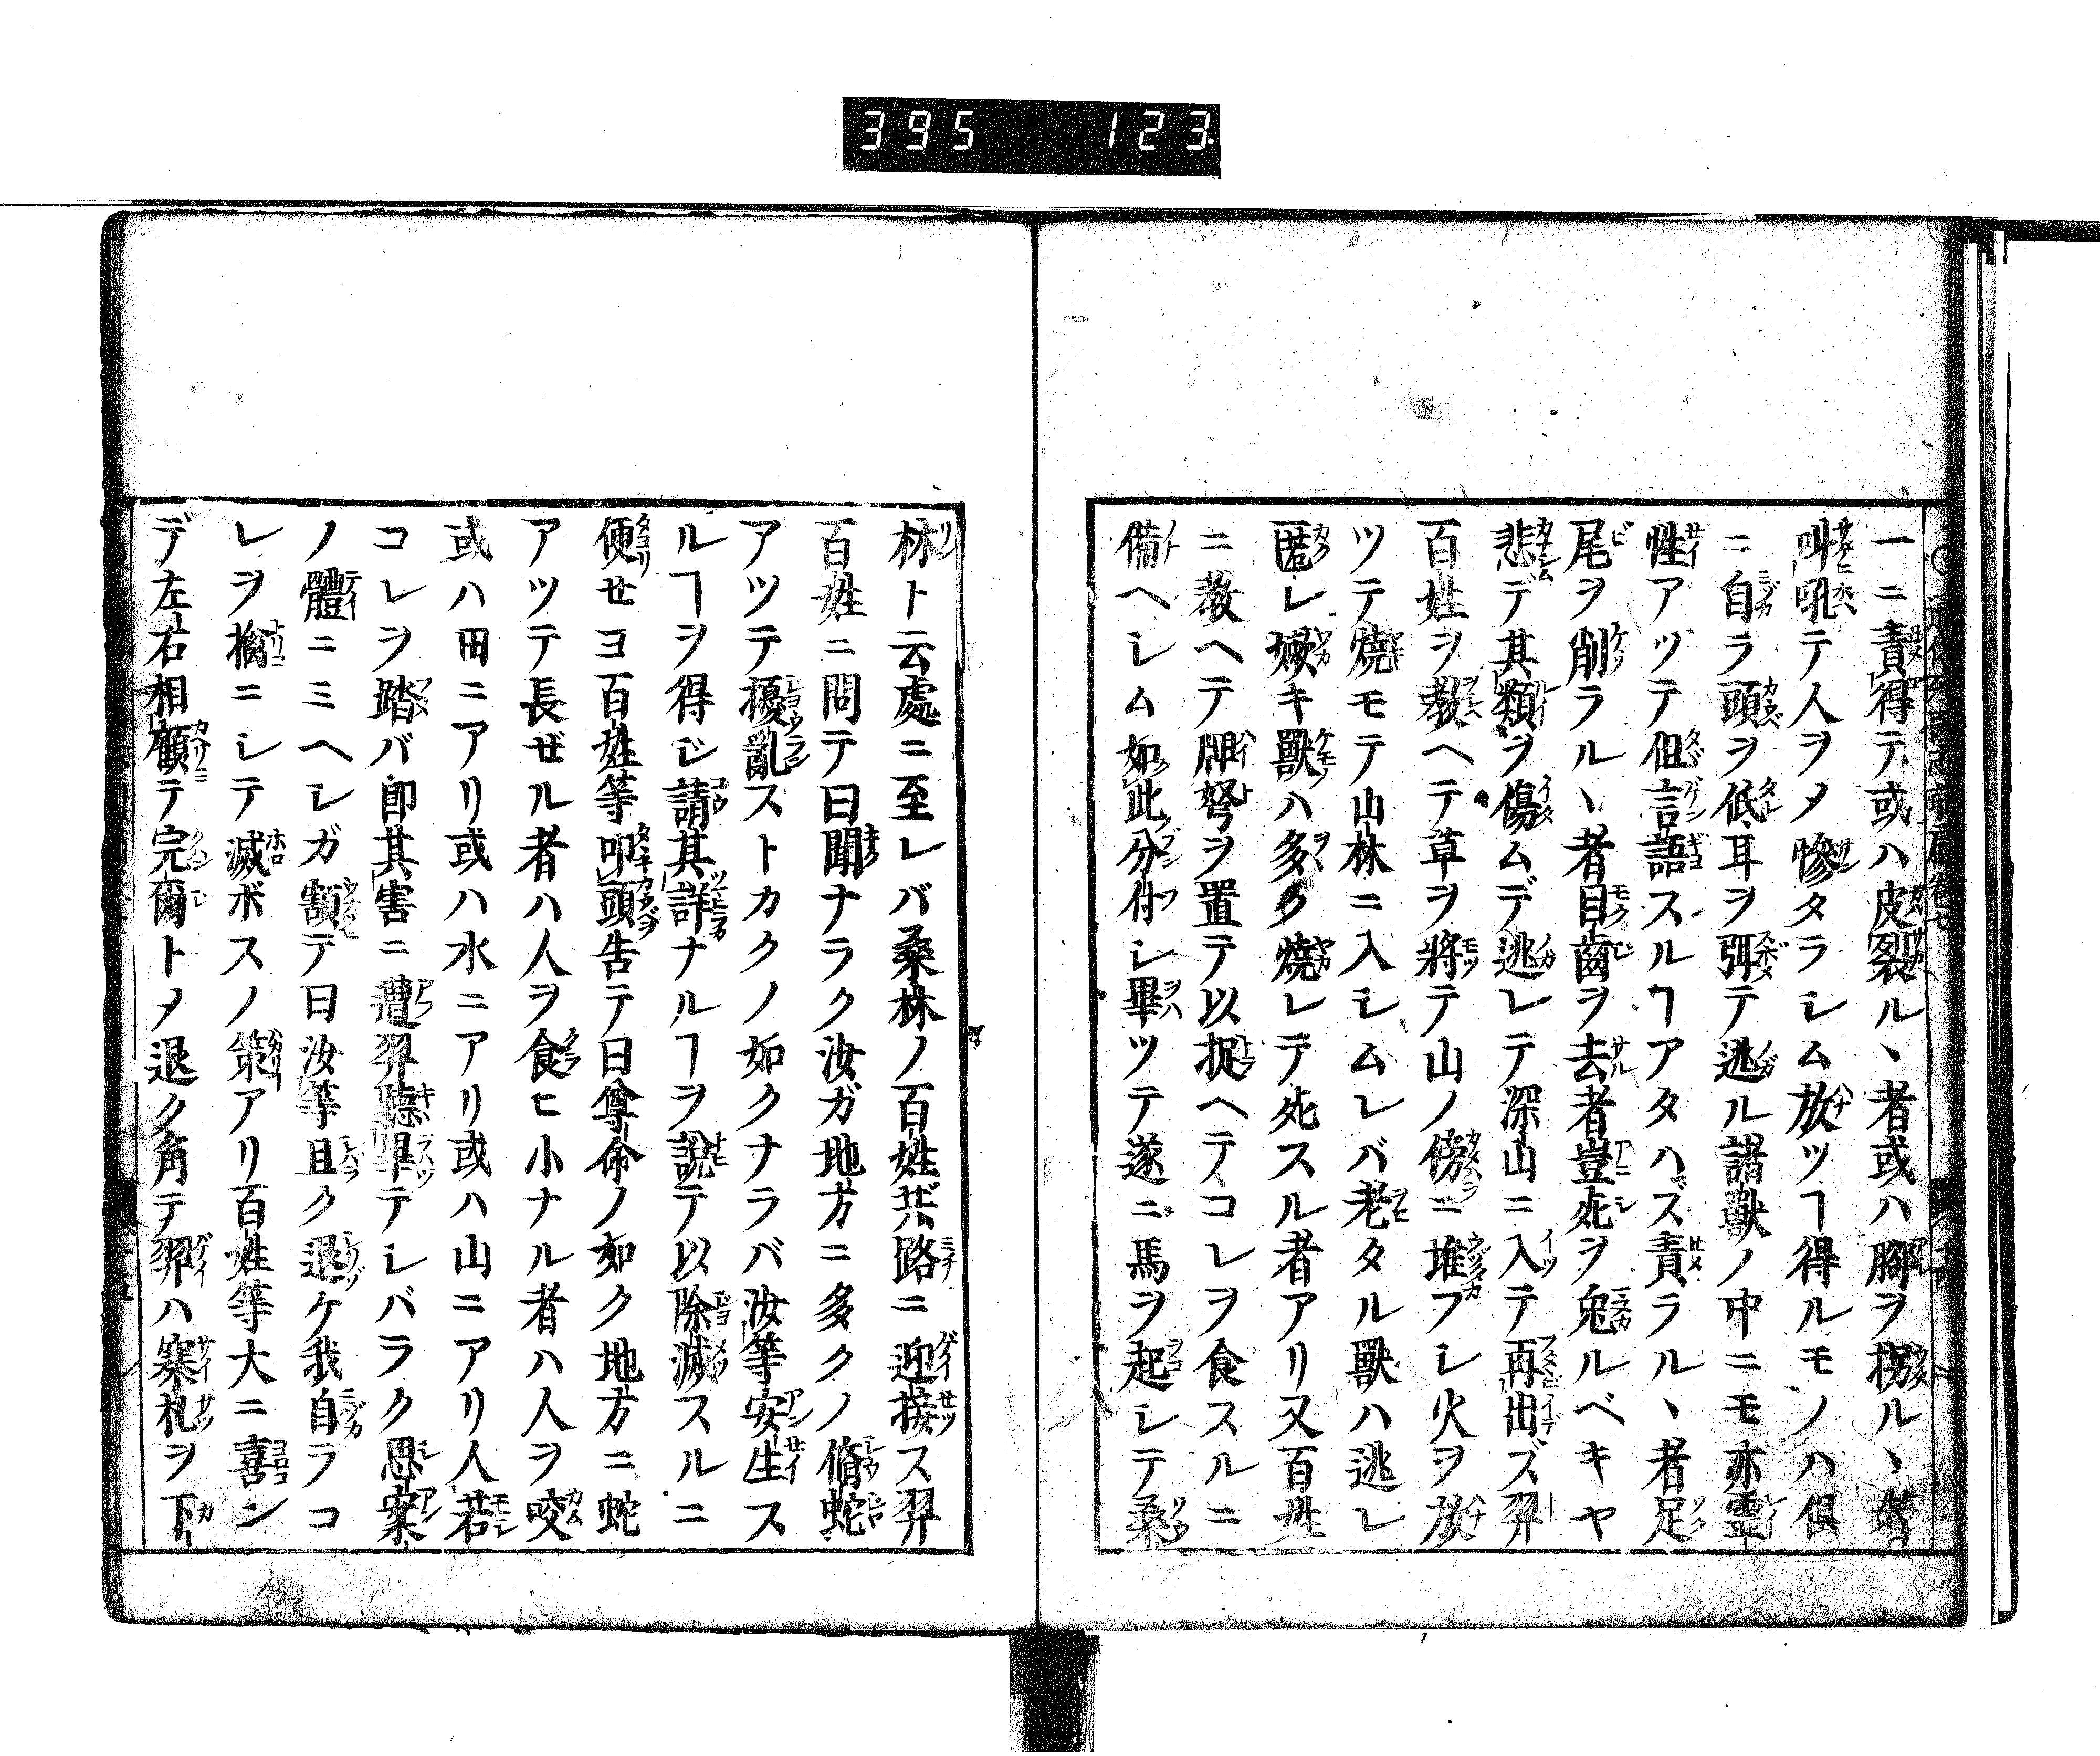 395 123
一ニ責得テ或ハ皮裂ル、者或ハ腳ヲ拐ル、者
叫吼テ人ヲメ慘タラシム放ツヿ得ルモノハ俱
ニ自ラ頭ヲ低耳ヲ弭テ逃ル諸獸ノ中ニモ亦靈
性アツテ但言語スルヿアタハズ責ラル、者足
尾ヲ削ラル、者目齒ヲ去者豈死ヲ免ルベキヤ
悲デ其類ヲ傷ムデ逃レテ深山ニ入テ再出ズ羿
百姓ヲ教ヘテ草ヲ將テ山ノ傍ニ堆フシ火ヲ放
ツテ燒モテ山林ニ入シムレバ老タル獸ハ逃レ
匿レ嫩キ獸ハ多ク燒レテ死スル者アリ又百姓
ニ教ヘテ弩ヲ置テ以捉ヘテコレヲ食スルニ
備ヘシム如此分付シ畢ツテ遂ニ馬ヲ起シテ桑
林ト云處ニ至レバ桑林ノ百姓共路ニ迎接ス羿
百姓ニ問テ曰聞ナラク汝ガ地方ニ多クノ脩蛇
アツテ擾亂ストカクノ如クナラバ汝等安生ス
ルヿヲ得ジ請其詳ナルヿヲ說テ以除滅スルニ
便セヨ百姓等叩頭告テ曰尊命ノ如ク地方ニ蛇
アツテ長ゼル者ハ人ヲ食ヒ小ナル者ハ人ヲ咬
或ハ田ニアリ或ハ水ニアリ或ハ山ニアリ人若
コレヲ踏バ即其害ニ遭羿聽畢テシバラク思案
ノ體ニミヘシガ額テ曰汝等且ク退ケ我自ラコ
レヲ擒ニシテ滅ボスノ策アリ百姓等大ニ喜ン
デ左右相顧テ完爾トメ退ク角テ羿ハ寨札ヲ下